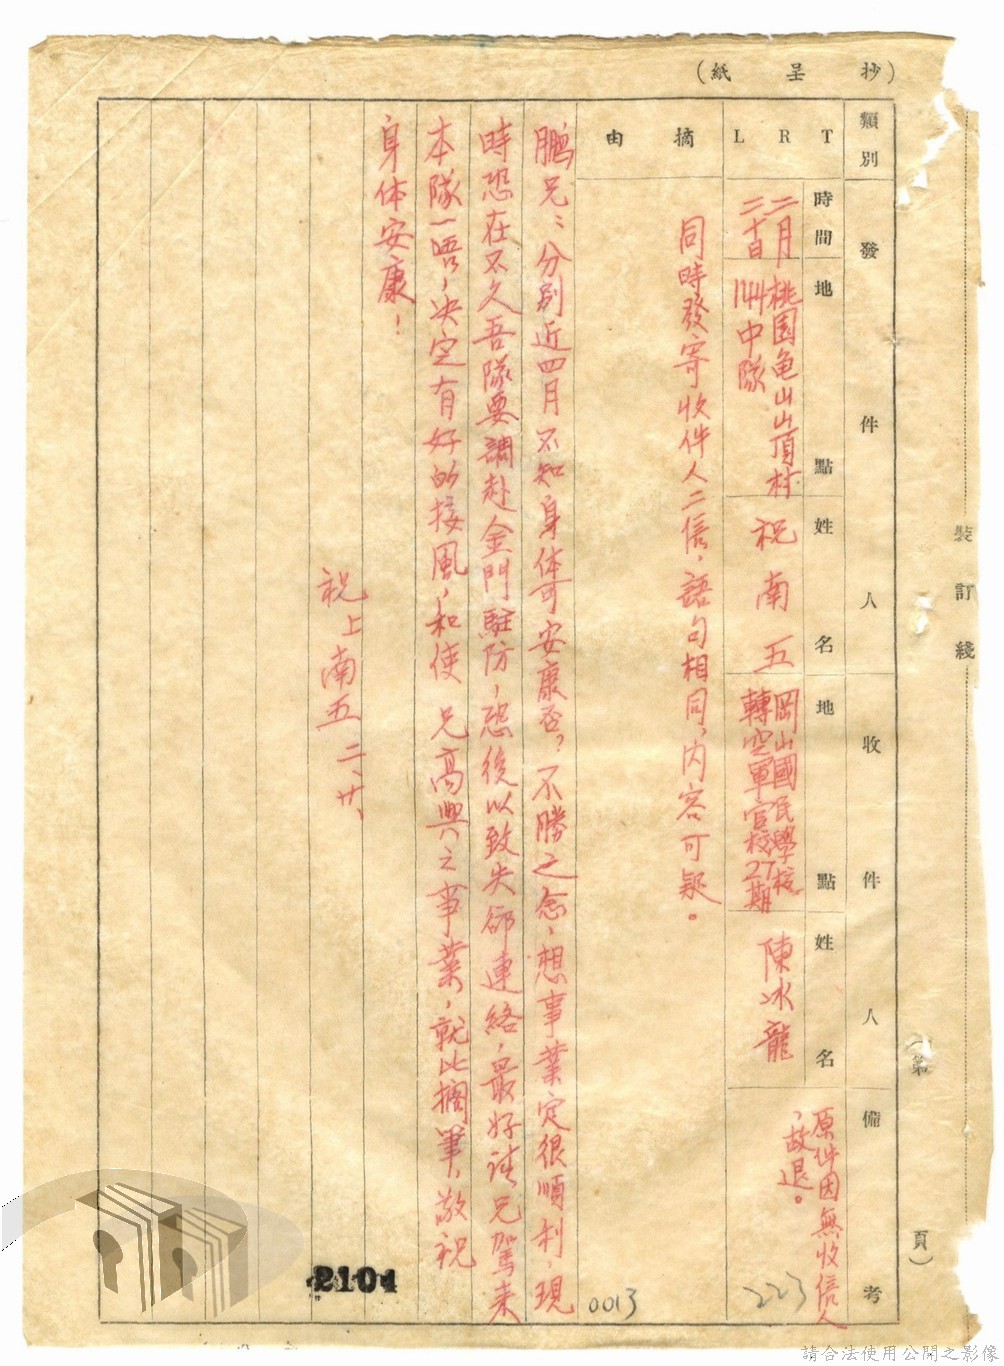 (抄呈紙)
類別
發件人
收件人
備考
LRT
時間
地點
姓名
地點
姓名
二月二十日
桃园龟山山頂村
144中隊
祝南五
岡山國民學校
轉空軍官校27期
陳冰龍
原件因無收信人
故退。
223
摘由
同時發寄收件人二信，語句相同，内容可疑。
0013
鵬兄：分別近四月不知身体可安康否？不勝之念，想事業定很順利，現
時恐在不久吾隊要調赴金門駐防，恐後以致失卻連絡，最好請兄駕来
本隊一晤，决定有好的接風，和使 兄高興之事業，就此擱筆，敬祝
身体安康！
祝上南五 二、廿、
2104
裝訂綫
(第 頁)
請合法使用公開之影像